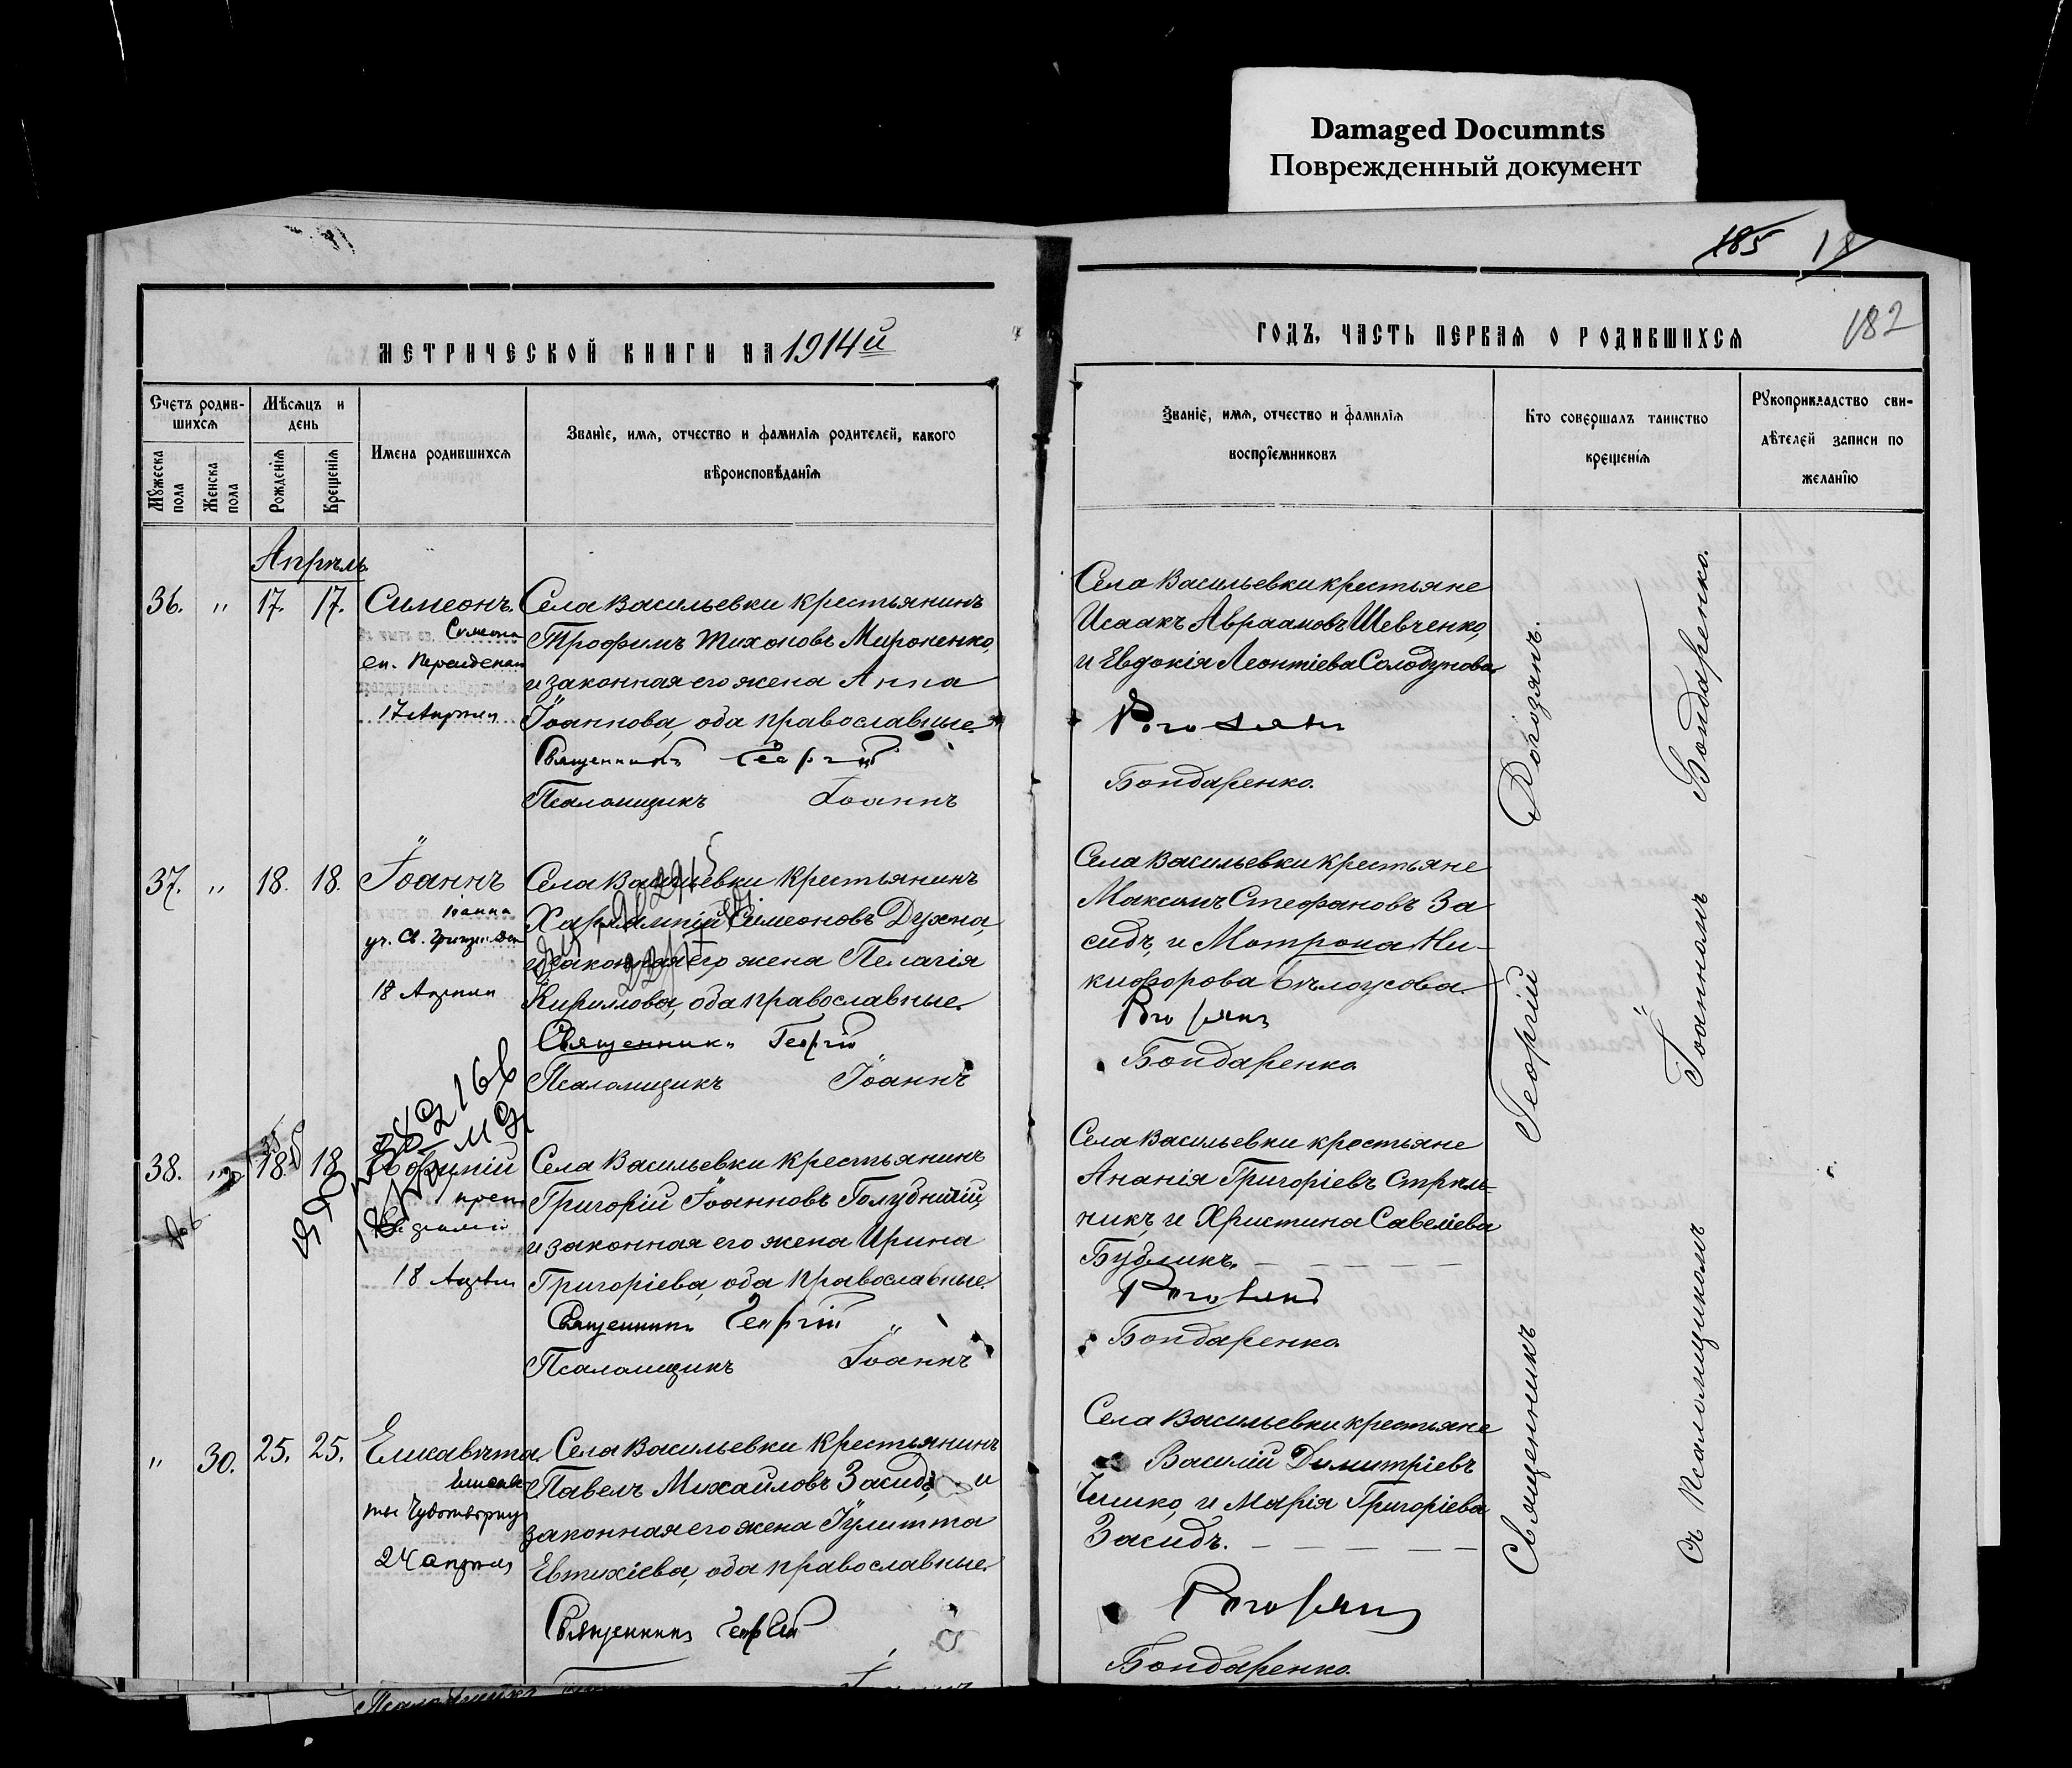 Damaged Documnts
Поврежденный документ
185 18
182
МЕТРИЧЕСКОЙ КНИГИ НА 1914й
ГОДЪ, ЧАСТЬ ПЕРВАЯ О РОДИВШИХСЯ
Счетъ родив-
шихся
Мужеска
пола
Женска
пола
Мѣсяцъ и
день
Рожденія
Крещенія
Имена родившихся
Званіе, имя, отчество и фамилія родителей, какого
вѣроисповѣданія
Званіе, имя, отчество и фамилія
воспріемниковъ
Кто совершалъ таинство
крещенія
Рукоприкладство сви-
дѣтелей записи по
желанію
Апрѣль
36. " 17. 17. Симеонъ.
Симеона
еп. Персидскаго
17 Апрѣля
Села Васильевки крестьянинъ
Трофимъ Тихоновъ Мироненко,
и законная его жена Анна
Іоаннова, оба православные.
Священникъ Георгій
Псаломщикъ Іоаннъ
Села Васильевки крестьяне
Исаакъ Авраамовъ Шевченко,
и Евдокія Леонтіева Солодунова.
Рогозянъ
Бондаренко.
37. " 18. 18. Іоаннъ
Іоанна
уч. Св. Григ. Дек
18 Апрѣля
Села Васильевки крестьянинъ
Харлампій Симеоновъ Духна,
и законная его жена Пелагія
Кириллова, оба православные.
Священникъ Георгій
Псаломщикъ Іоаннъ
Села Васильевки крестьяне
Максимъ Стефановъ За
сидъ, и Матрона Ни-
кифорова Бѣлоусова.
Рогозянъ
Бондаренко
38. 18. 18 Евфимій
18 Апрѣля
Села Васильевки крестьянинъ
Григорій Іоанновъ Голубничій,
и законная его жена Ирина
Григоріева, оба православные.
Священникъ Георгій
Псаломщикъ Іоаннъ
Села Васильевки крестьяне
Ананія Григоріевъ Стрѣль-
никъ, и Христина Савеліева
Бубликъ.
Рогозянъ
Бондаренко.
" 30. 25. 25. Елисавета.
Елисаве
ты Чудотворицы
24 апрѣля
Села Васильевки крестьянинъ
Павелъ Михайловъ Засидъ, и
законная его жена Іулитта
Евтихіева, оба православные.
Священникъ Георгій
Села Васильевки крестьяне
Василій Димитріевъ
Чешко, и Марія Григоріева
Засидъ.
Рогозянъ
Бондаренко.
Священникъ Георгій Рогозянъ.
Съ Псаломщикомъ Іоанномъ Бондаренко.